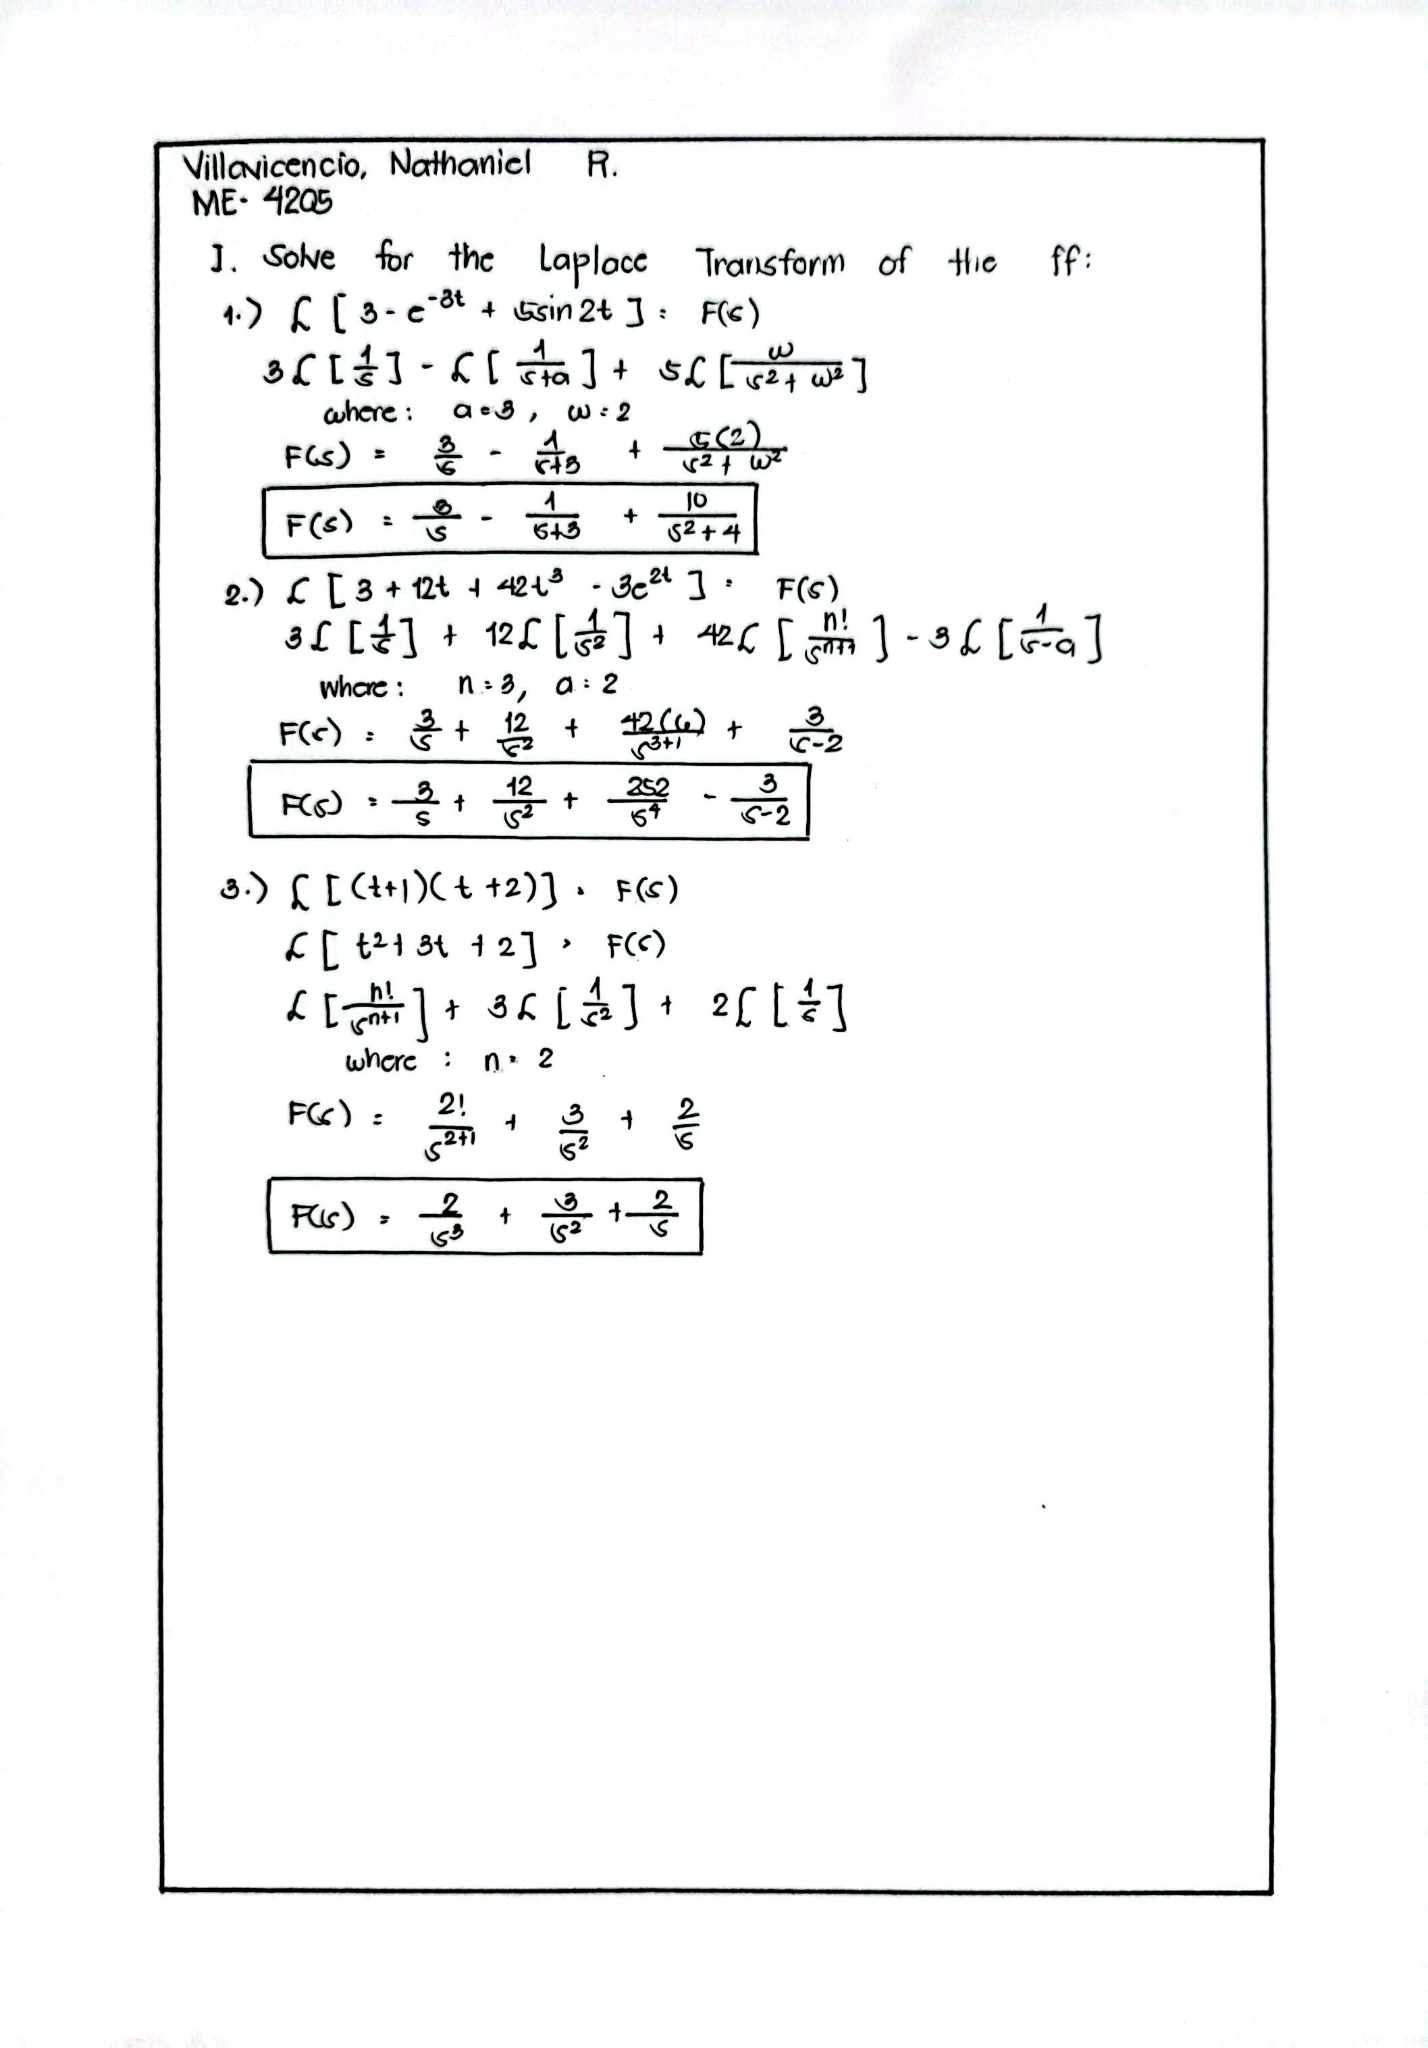 Villavicencio, Nathaniel R.
ME- 4205
I. Solve for the Laplace Transform of the ff:
1.) ℒ [ 3 - e^-3t + 5sin 2t ] = F(s)
3ℒ [ 1/s ] - ℒ [ 1/s+a ] + 5ℒ [ ω/s² + ω² ]
where : a = 3 , ω = 2
F(s) = 3/s - 1/s+3 + 5(2)/s² + ω²
F(s) = 3/s - 1/s+3 + 10/s² + 4
2.) ℒ [ 3 + 12t + 42t³ - 3e^2t ] = F(s)
3ℒ [ 1/s ] + 12ℒ [ 1/s² ] + 42ℒ [ n!/s^n+1 ] - 3ℒ [ 1/s-a ]
where : n = 3, a = 2
F(s) = 3/s + 12/s² + 42(6)/s^3+1 + 3/s-2
F(s) = 3/s + 12/s² + 252/s⁴ - 3/s-2
3.) ℒ [ (t+1)(t +2) ] = F(s)
ℒ [ t² + 3t + 2 ] = F(s)
ℒ [ n!/s^n+1 ] + 3ℒ [ 1/s² ] + 2ℒ [ 1/s ]
where : n = 2
F(s) = 2!/s^2+1 + 3/s² + 2/s
F(s) = 2/s³ + 3/s² + 2/s